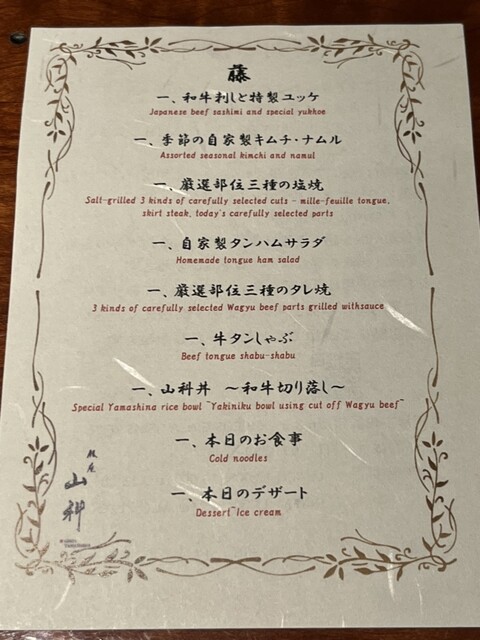 藤
一、和牛刺しと特製ユッケ
Japanese beef sashimi and special yukhoe
一、季節の自家製キムチ・ナムル
Assorted seasonal kimchi and namul
一、厳選部位三種の塩焼
Salt-grilled 3 kinds of carefully selected cuts - mille-feuille tongue,
skirt steak, today's carefully selected parts
一、自家製タンハムサラダ
Homemade tongue ham salad
一、厳選部位三種のタレ焼
3 kinds of carefully selected Wagyu beef parts grilled withsauce
一、牛タンしゃぶ
Beef tongue shabu-shabu
一、山科丼 〜和牛切り落し〜
Special Yamashina rice bowl ~Yakiniku bowl using cut off Wagyu beef~
一、本日のお食事
Cold noodles
一、本日のデザート
Dessert~Ice cream
山科